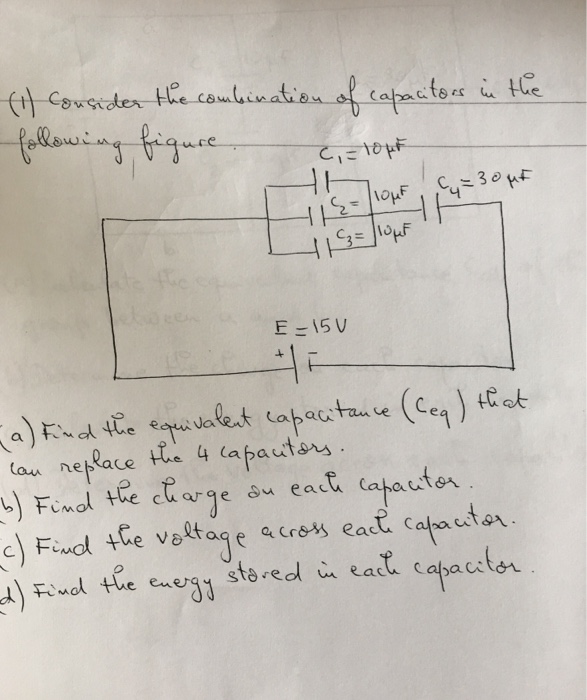 (1) Consider the combination of capacitors in the
following figure.
C₁ = 10 μF
C₂ = 10 μF
C₃ = 10 μF
C₄ = 30 μF
E = 15 V
+ -
(a) Find the equivalent capacitance (Ceq) that
can replace the 4 capacitors.
b) Find the charge on each capacitor.
c) Find the voltage across each capacitor.
d) Find the energy stored in each capacitor.